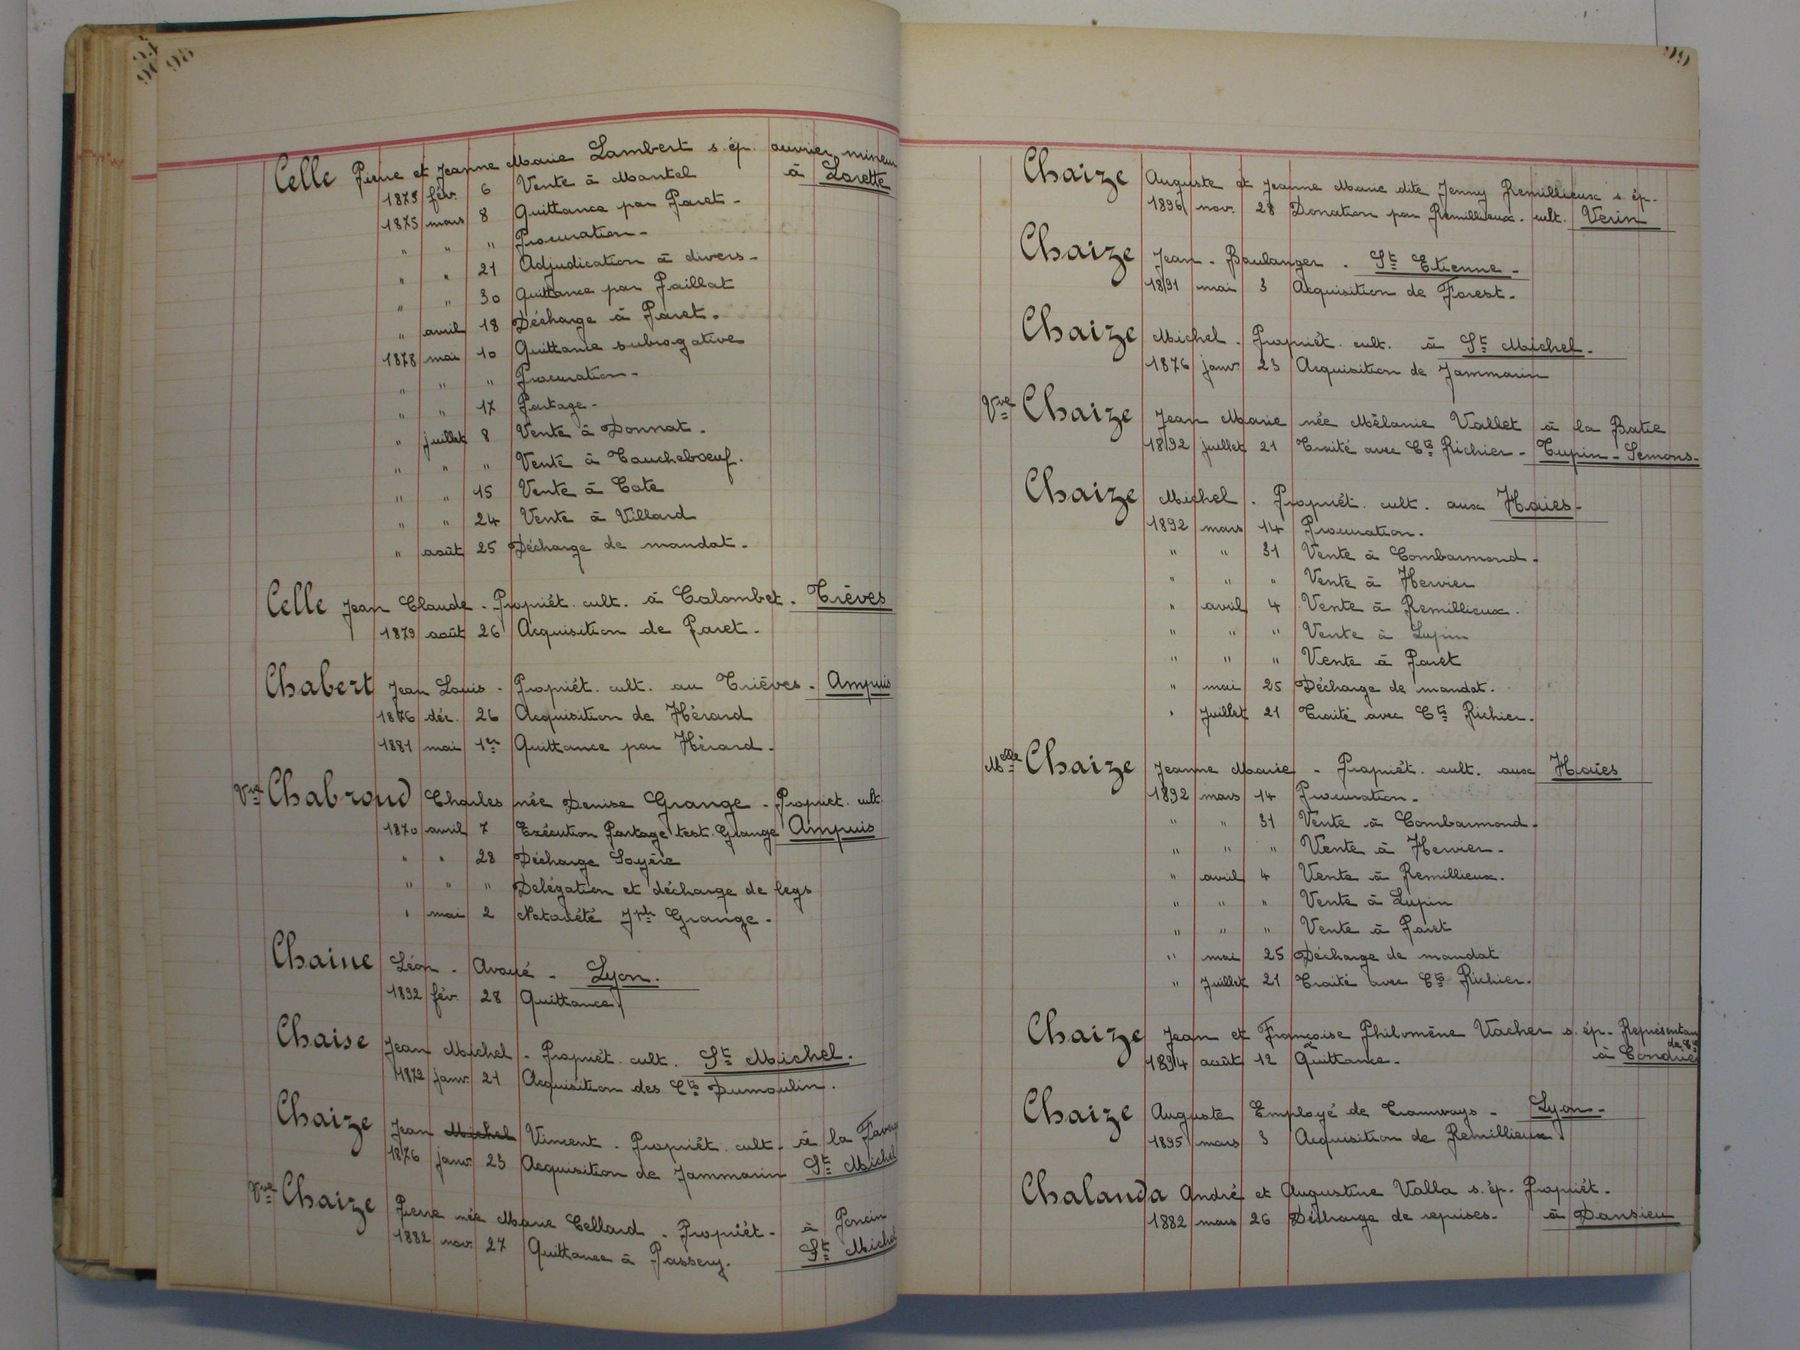 98
Celle Pierre et Jeanne Marie Lambert s. ép. ouvrier mineur
à Lorette
1873 fév. 6 Vente à Mantel
1875 mars 8 Quittance par Paret -
" " " Procuration -
" " 21 Adjudication à divers -
" " 30 Quittance par Paillat
" avril 18 Décharge à Paret.
1878 mai 10 Quittance subrogative
" " " Procuration -
" " 17 Partage -
" juillet 8 Vente à Donnat.
" " " Vente à Toucheboeuf.
" " 15 Vente à Cote
" " 24 Vente à Villard
" août 25 Décharge de mandat.
Celle Jean Claude - Propriét. cult. à Calombet. Trèves
1879 août 26 Acquisition de Paret -
Chabert Jean Louis - Propriét. cult. au Trièves - Ampuis
1876 déc. 26 Acquisition de Hérard
1881 mai 1er Quittance par Hérard -
Vve Chabroud Charles née Denise Grange - Propriét. cult.
1870 avril 7 Exécution Partage test. Grange Ampuis
" " 28 Décharge Soyère
" " " Delégation et décharge de legs
" mai 2 Notoriété Jph Grange -
Chaine Léon - Avoué - Lyon.
1892 fév. 28 Quittance
Chaise Jean Michel - Propriét. cult. St Michel.
1872 janv. 21 Acquisition des Cts Dumoulin.
Chaize Jean Michel Vincent - Propriét. cult. à la
1876 janv. 23 Acquisition de Jammarin St Michel
Vve Chaize Pierre née Marie Cellard - Propriét - à Poncin
1882 nov. 27 Quittance à Passery. St Michel
99
Chaize Auguste et Jeanne Marie dite Jenny Remillieux s. ép.
1896 nov. 28 Donation par Remillieux. cult. Verin
Chaize Jean - Boulanger - St Etienne -
1891 mai 3 Acquisition de Forest -
Chaize Michel - Propriét. cult. à St Michel.
1876 janv. 23 Acquisition de Jammarin
Vve Chaize Jean Marie née Mélanie Vallet à la Batie
1892 juillet 21 Traité avec Cts Richier - Tupin-Semons -
Chaize Michel - Propriét. cult. aux Haies -
1892 mars 14 Procuration.
" " 31 Vente à Combarmond -
" " " Vente à Hervier
" avril 4 Vente à Remillieux.
" " " Vente à Lupin
" " " Vente à Paret
" mai 25 Décharge de mandat.
" Juillet 21 Traité avec Cts Richier -
Melle Chaize Jeanne Marie - Propriét. cult. aux Haies
1892 mars 14 Procuration -
" " 31 Vente à Combarmond -
" " " Vente à Hervier -
" avril 4 Vente à Remillieux.
" " " Vente à Lupin
" " " Vente à Paret
" mai 25 Décharge de mandat
" Juillet 21 Traité avec Cts Richier.
Chaize Jean et Françoise Philomène Vacher s. ép. Représentant
à Condrieu
1894 août 12 Quittance -
Chaize Auguste Employé de Tramways - Lyon -
1895 mars 3 Acquisition de Remillieux
Chalanda André et Augustine Valla s. ép. Propriét.
1882 mars 26 Décharge de reprises. à Pansieu